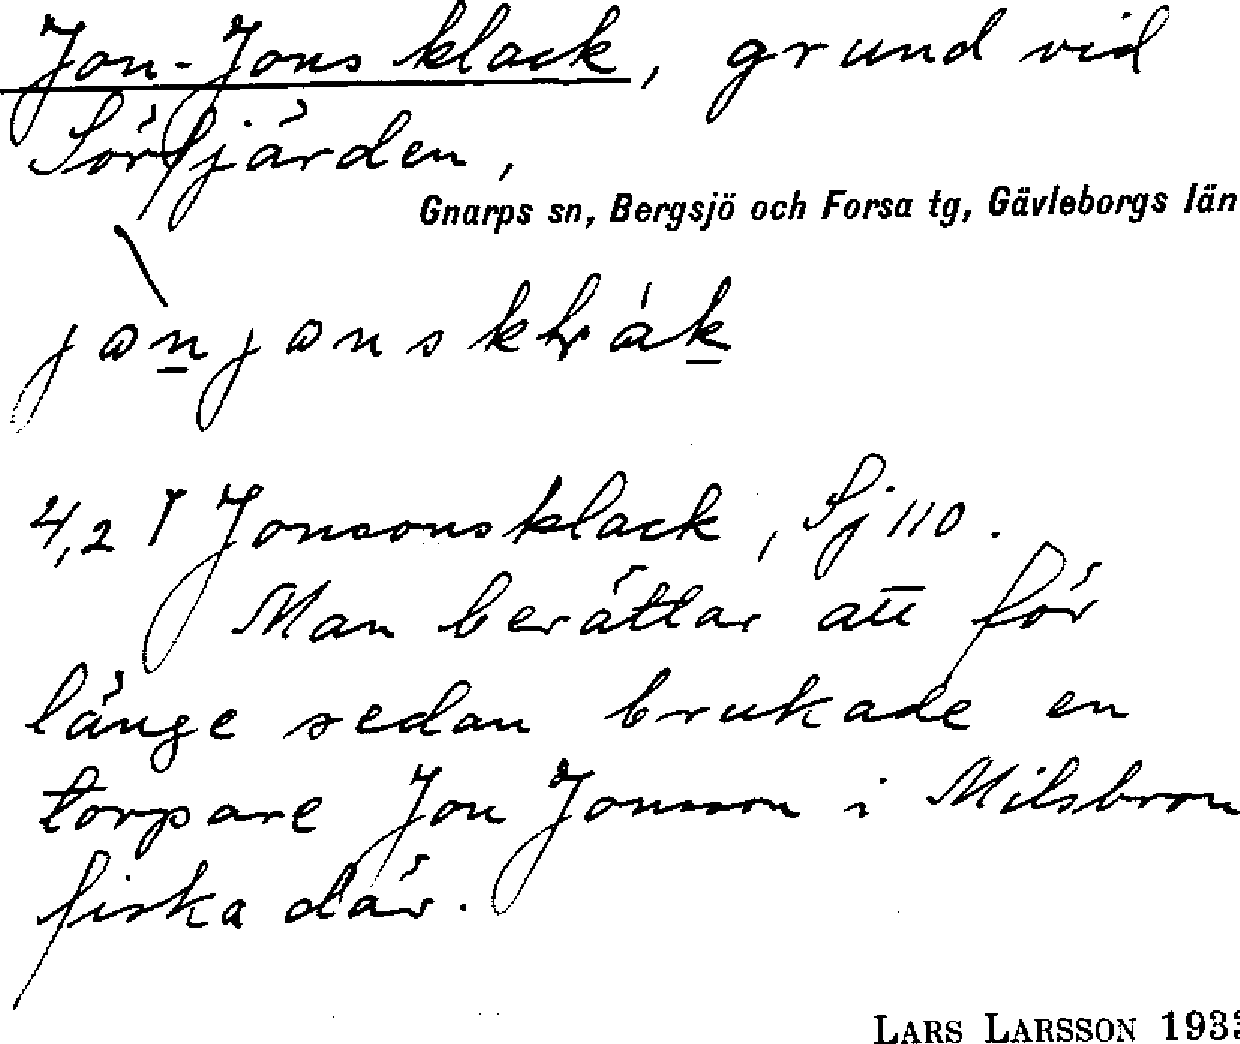 Jon-Jons klack, grund vid
Sörfjärden,
Gnarps sn, Bergsjö och Forsa tg, Gävleborgs län
4,2 Jonsonsklack, Sj 110.
Man berättar att för
länge sedan brukade en
torpare Jon Jonsson i Milsbron
fiska där.
LARS LARSSON